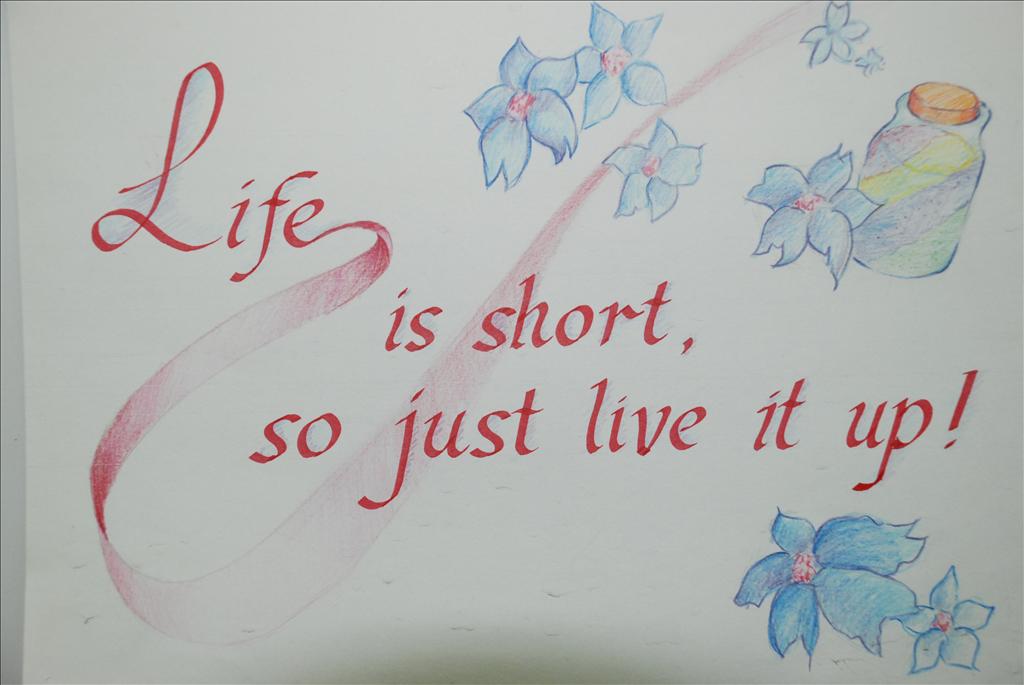 Life
is short,
so just live it up!